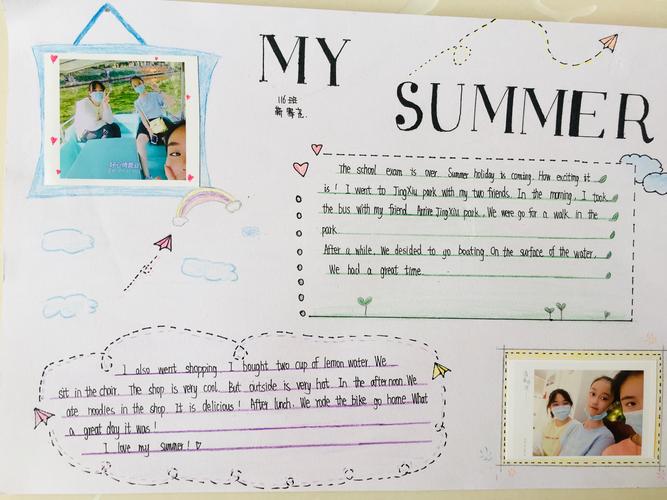 MY
SUMMER
116班
The school exam is over. Summer holiday is coming. How exciting it
is! I went to JingXiu park with my two friends. In the morning, I took
the bus with my friend. Arrive JingXiu park. We were go for a walk in the
park.
After a while, We desided to go boating. On the surface of the water.
We had a great time.
I also went shopping. I bought two cup of lemon water. We
sit in the chair. The shop is very cool. But outside is very hot. In the afternoon. We
ate noodles in the shop. It is delicious! After lunch. We rode the bike go home. What
a great day it was!
I love my summer!